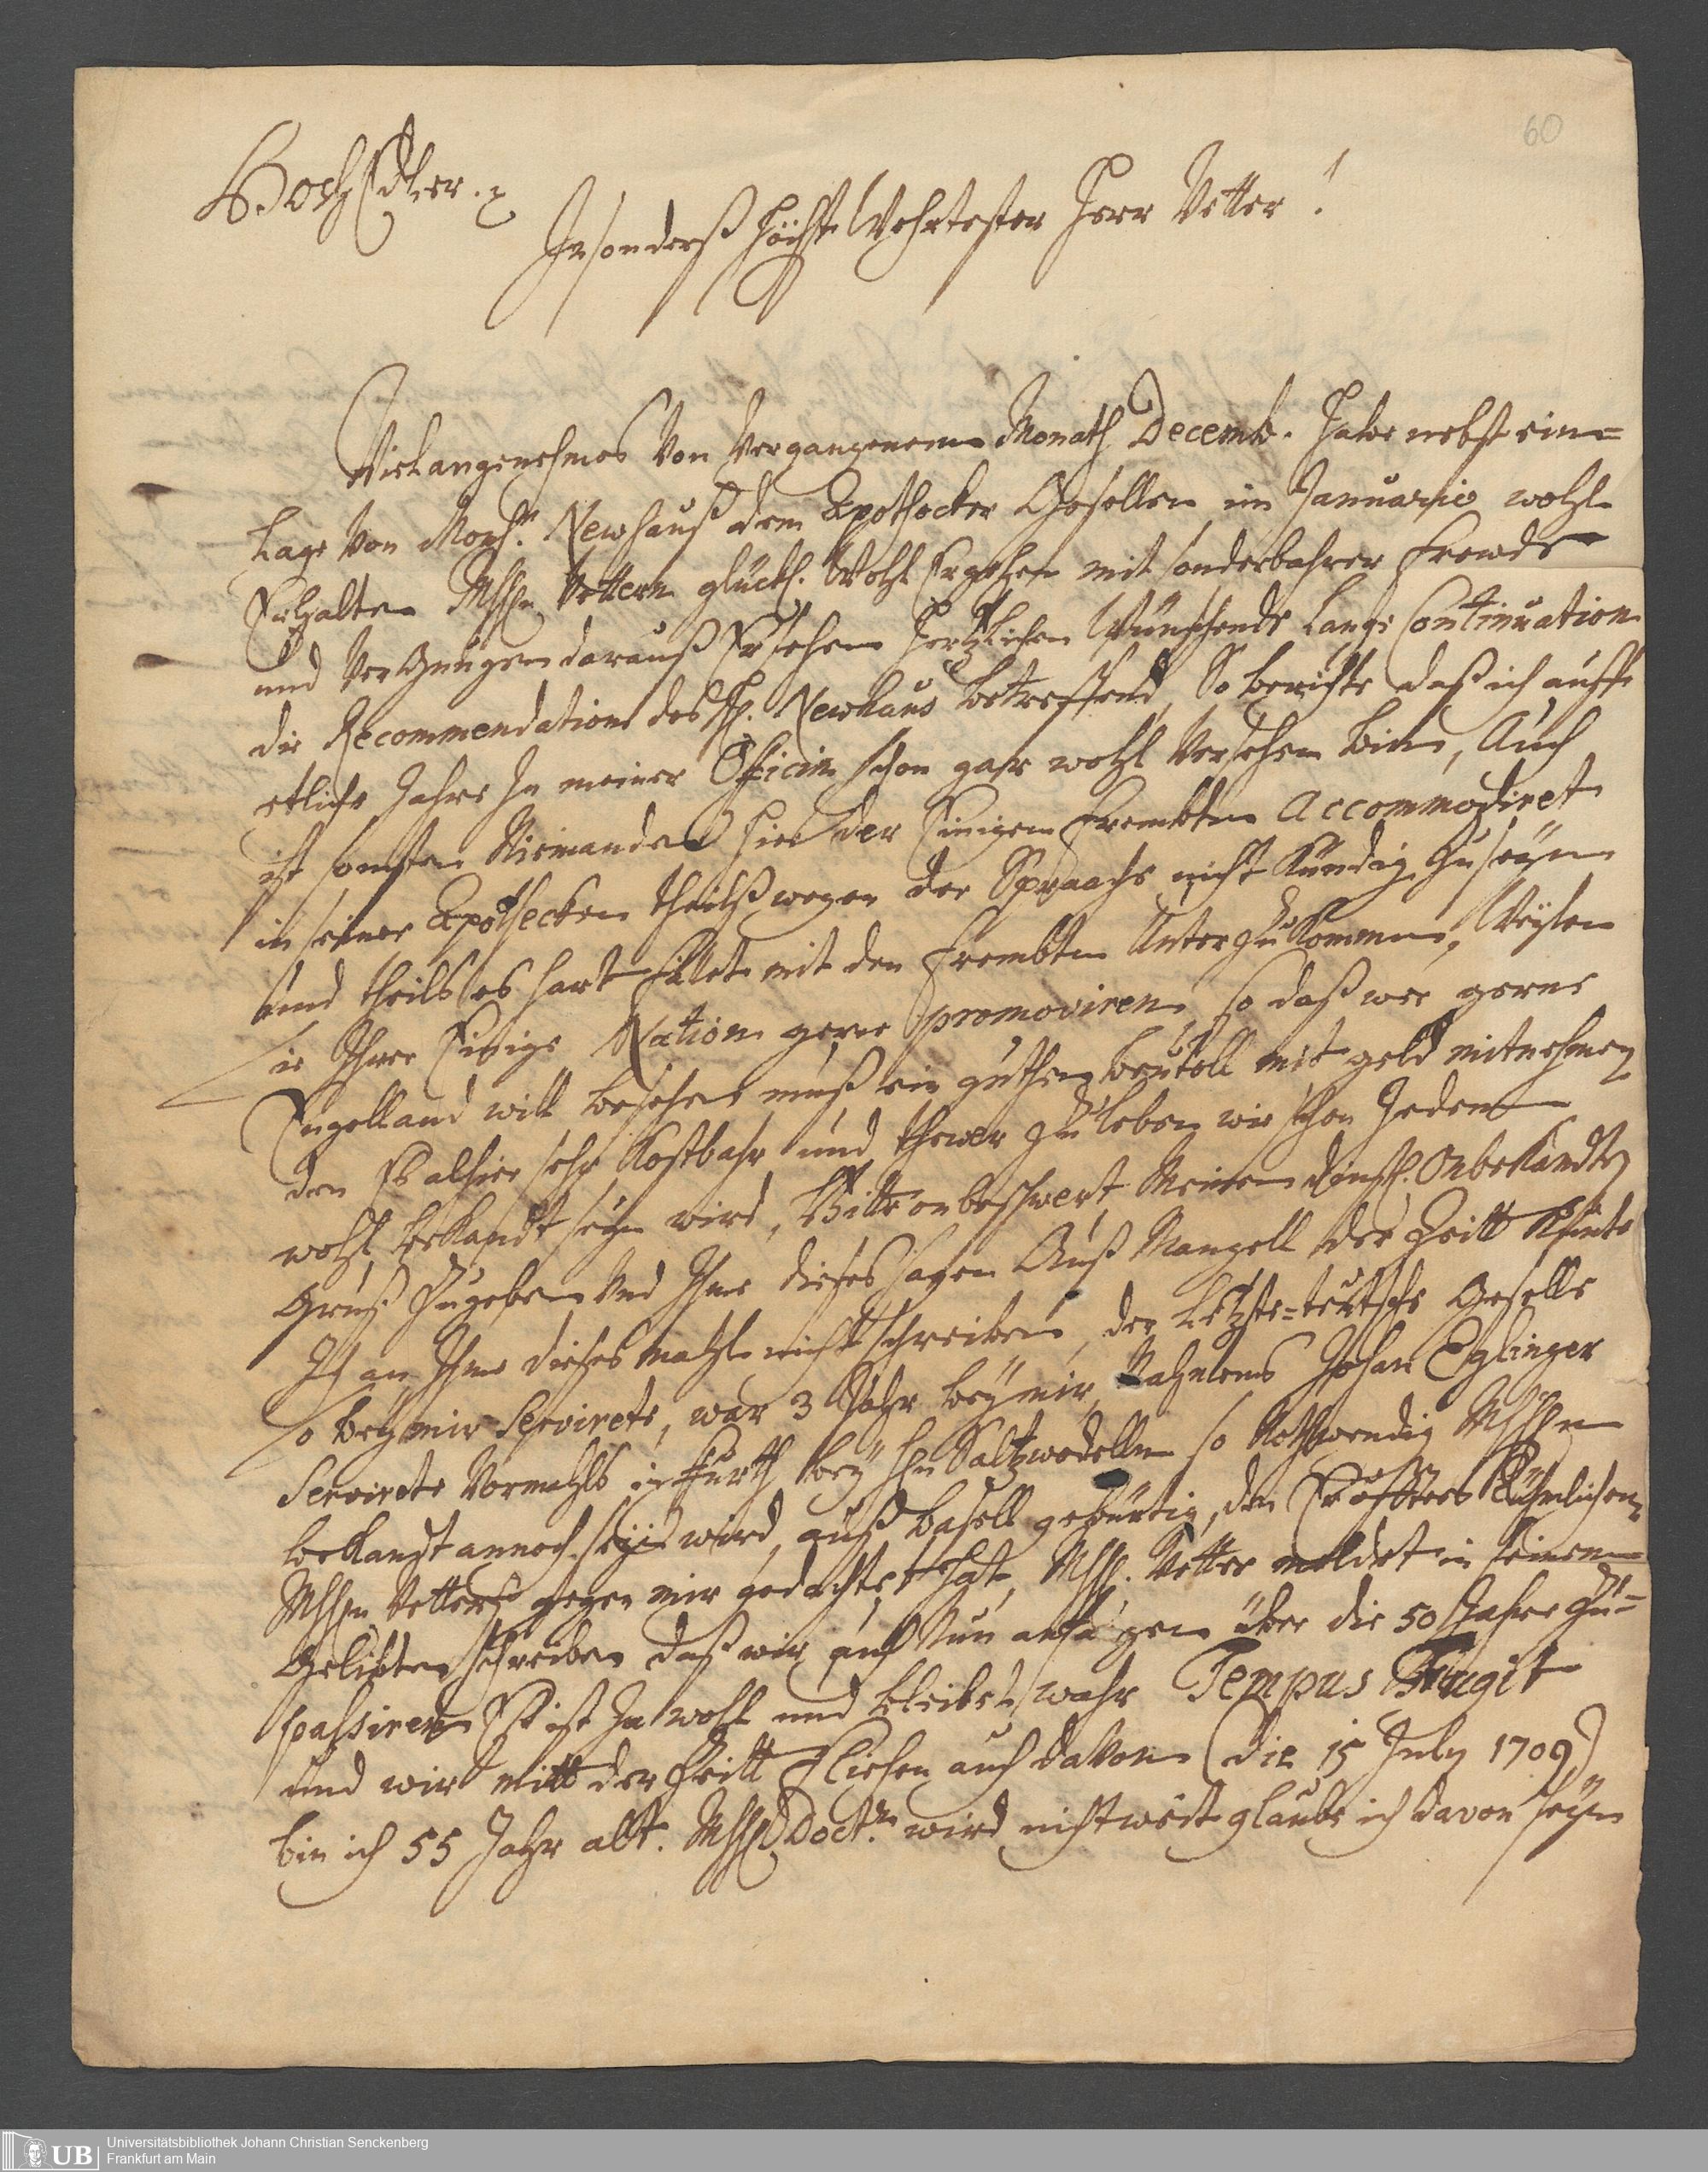 60
HochEdler.
Insonderß höchst Wehrtester Herr Vetter!
Vielangenehmes Von Vergangenem Monath Decemb. habe nebst ein=
lage Von Monsr. Newhauß dem Apothecker Gesellen im Januario wohl
Erhalten MhhEn Vettern glückl. Wohl Ergehen mit sonderbahrer Frewde
und Vergnügen darauß Ersehen hertzlichen Wünschende lange Continuation
die Recommendation des H. Newhaus betreffend, So berichte daß ich auff
etliche Jahre In meiner Officin schon gahr wohl Versehen bin, Auch
ist sonsten Niemandes hier der Einigen Frembten Accommodiret
in seiner Apothecken theilß wegen der Spraache nicht kündig zu seyn
und theils es hart fället mit den Frembten Unter zu kommen, Weilen
sie Ihrer Einige Nation gerne promoviren, so daß wer gerne
Engelland will besehen muß ein guthen beutell mit geld mitnehmen
den Es alhier sehr kostbahr und thewer zu leben wie schon Jedem
wohl bekandt seyn wird, Bitte onbeschwert Meinen dinstl. Onbekandten
gruß zu geben Und Ihme dieses sagen Auß Mangell der Zeitt könte
Ich an Ihme dieses mahl nicht schreiben, der letzte=teutsche Geselle
so bey mir Servirete, war 3 Jahr bey mir, Nahmens Johan Eglinger
Servirete Vormahls in Fürth bey Hn Saltzwedelln so Nothwendig
bekandt annoch seyn wird, auß basell gebürtig, den Er öffters Rühmlichen
Vetters gegen mir gedachtet hat, Vetter meldet in seinem
Geliebten schreiben daß wir auch Nun anfangen über die 50 Jahre zu=
passiren Es ist Ja wohl und bleibet wahr Tempus Fugit
und wir mitt der Zeitt Fliehen auch davon (die 15 July 1709)
bin ich 55 Jahr alt. Doctr. wird nicht weit glaube ich davon seyn
UB
Universitätsbibliothek Johann Christian Senckenberg
Frankfurt am Main